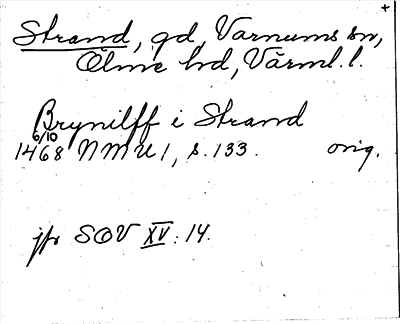 +
Strand, gd, Varnums sn,
Ölme hd, Värml. l.
Brynilff i Strand
6/10
1468 NMU 1, s. 133. orig.
jfr SOV XV: 14.